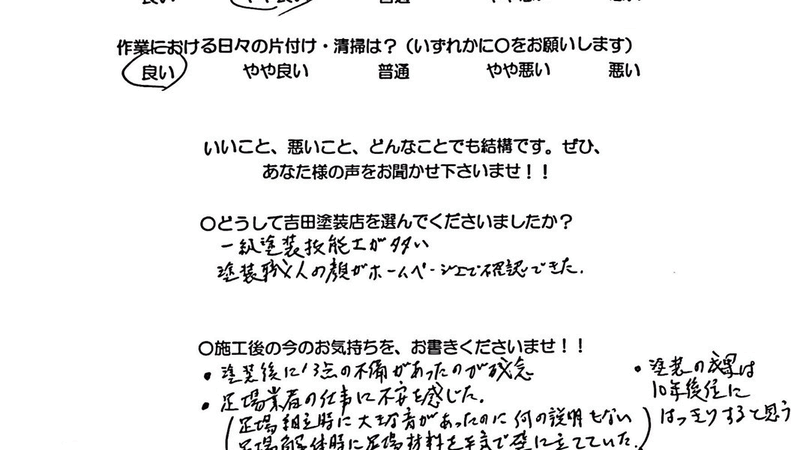 良い やや良い 普通 やや悪い 悪い
作業における日々の片付け・清掃は？（いずれかに〇をお願いします）
良い やや良い 普通 やや悪い 悪い
いいこと、悪いこと、どんなことでも結構です。ぜひ、
あなた様の声をお聞かせ下さいませ！！
〇どうして吉田塗装店を選んでくださいましたか？
一級塗装技能工が多い
塗装職人の顔がホームページ上で確認できた.
〇施工後の今のお気持ちを、お書きくださいませ！！
・塗装後に13点の不備があったのが残念
・足場業者の仕事に不安を感じた.
(足場組立時に大きな音があったのに何の説明もない
足場解体時に足場材料を手までに立てていた.)
・塗装の成果は
10年後位に
はっきりすると思う